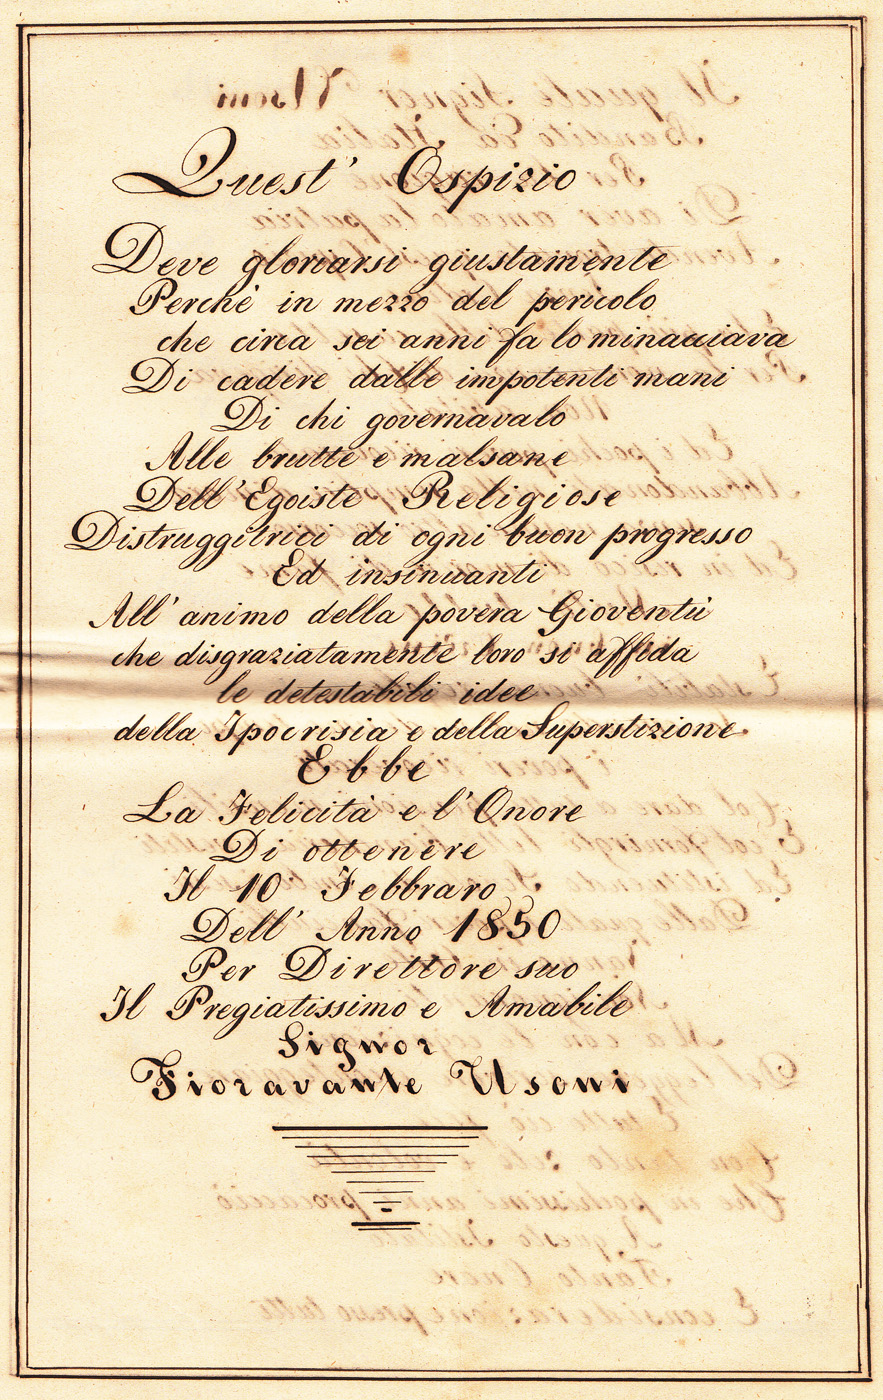 Quest' Ospizio
Deve gloriarsi giustamente
Perchè in mezzo del pericolo
che circa sei anni fa lo minacciava
Di cadere dalle impotenti mani
Di chi governavalo
Alle brutte e malsane
Dell' Egoiste Religiose
Distruggitrici di ogni buon progresso
Ed insinuanti
All' animo della povera Gioventù
che disgraziatamente loro si affida
le detestabili idee
della Ipocrisia e della Superstizione
Ebbe
La Felicità e l' Onore
Di ottenere
Il 10 Febbraro
Dell' Anno 1850
Per Direttore suo
Il Pregiatissimo e Amabile
Signor
Fioravante Usoni